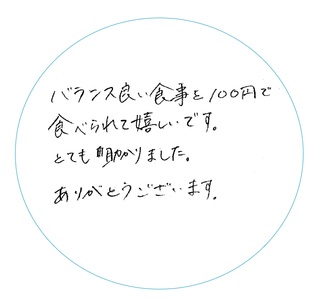 バランス良い食事を100円で
食べられて嬉しいです。
とても助かりました。
ありがとうございます。